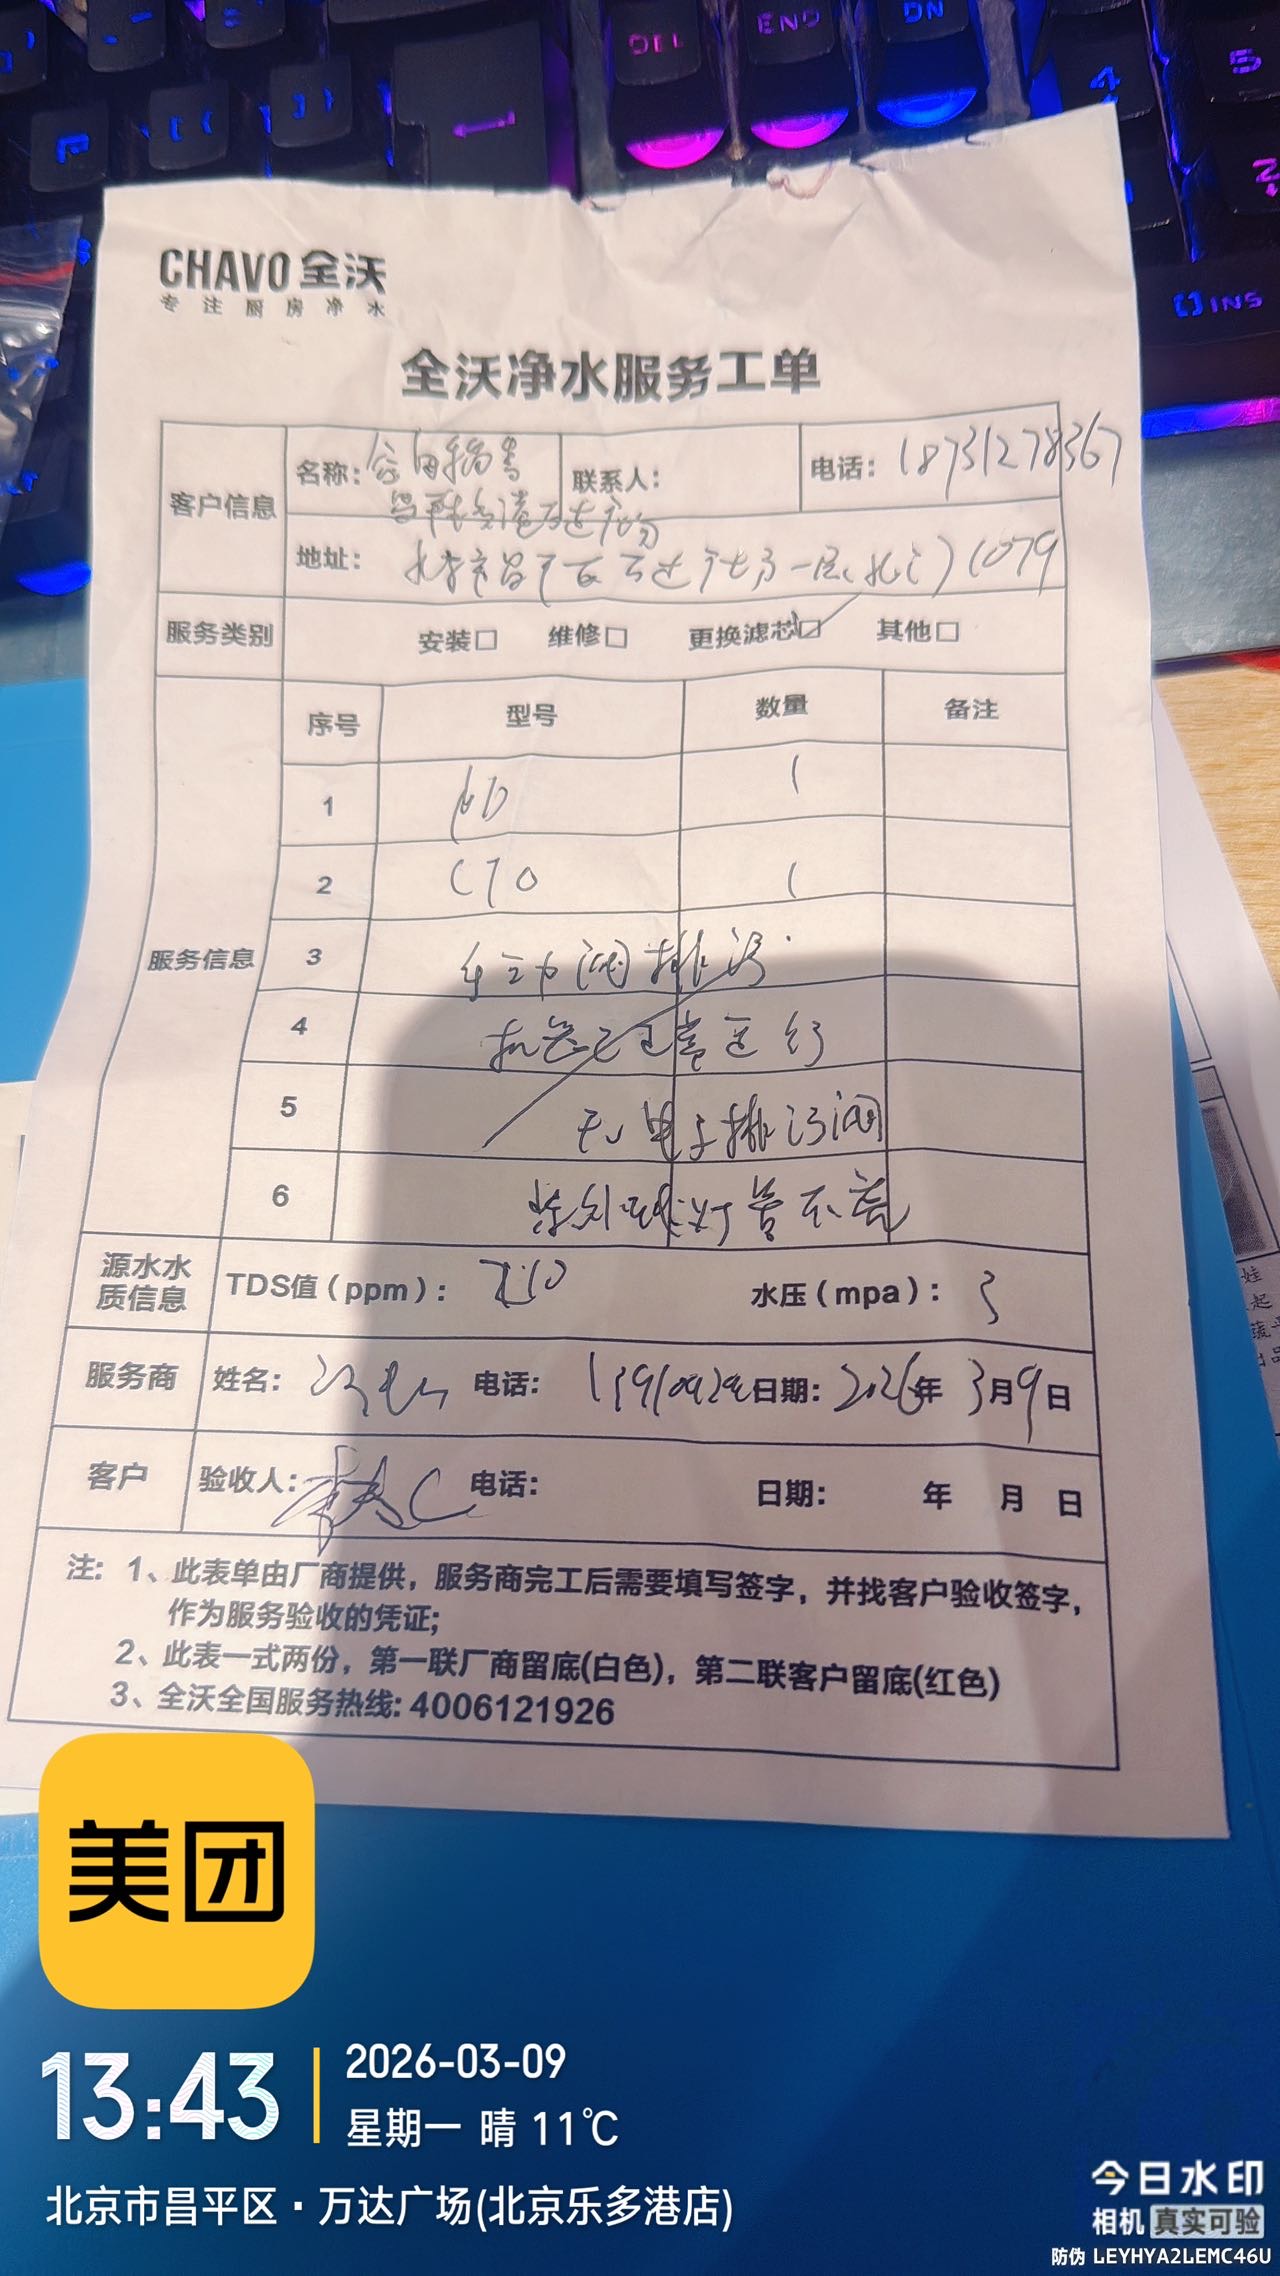 DEL
END
DN
4
5
INS
CHAVO 全沃
专注厨房净水
全沃净水服务工单
客户信息
名称:
联系人:
电话: 18731278367
地址: 北京市昌平区万达广场一层(北门)1079
服务类别
安装□ 维修□ 更换滤芯☑ 其他□
服务信息
序号 型号 数量 备注
1 1
2 CTO 1
3 手动阀排污
4 机器已正常运行
5 无电子排污阀
6 紫外线灯管不亮
源水水质信息
TDS值(ppm):
水压(mpa): 3
服务商 姓名: 电话: 日期: 2026年3月9日
客户 验收人: 电话: 日期: 年 月 日
注: 1、此表单由厂商提供，服务商完工后需要填写签字，并找客户验收签字，
作为服务验收的凭证;
2、此表一式两份，第一联厂商留底(白色)，第二联客户留底(红色)
3、全沃全国服务热线: 4006121926
美团
13:43
2026-03-09
星期一 晴 11℃
北京市昌平区·万达广场(北京乐多港店)
今日水印
相机 真实可验
防伪 LEYHYA2LEMC46U